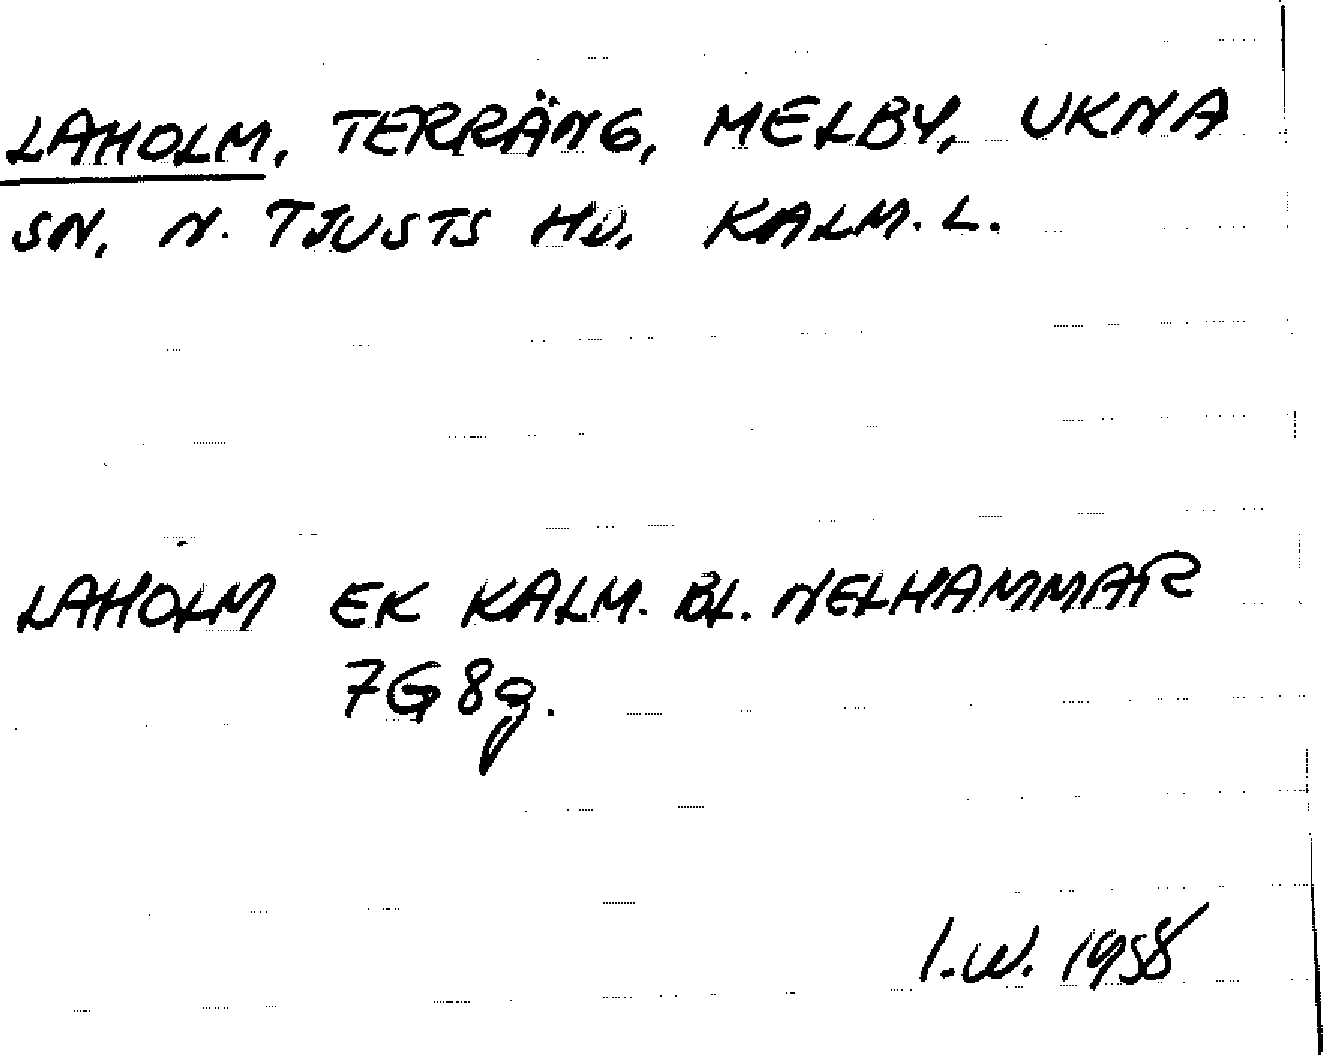 LAHOLM, TERRÄNG, MELBY, UKNA
SN, N. TJUSTS HD, KALM. L.
LAHOLM EK KALM. BL. NELHAMMAR
7G8g.
I.W. 1958